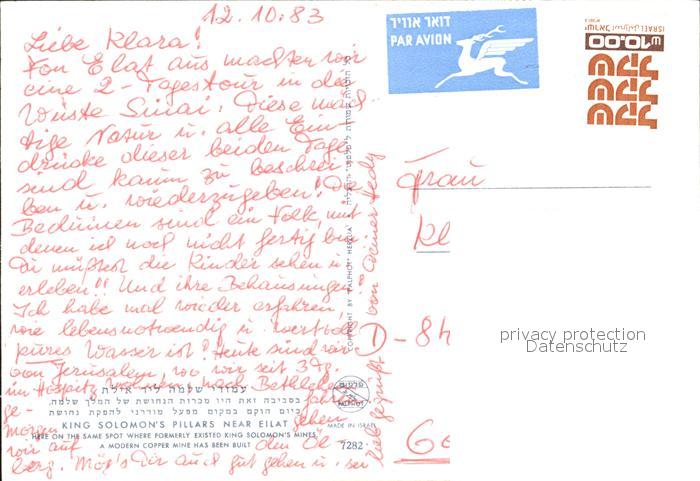 12.10.83
Liebe Klara!
Von Elat aus machten wir
eine 2-Tagestour in die
Wüste Sinai. Diese mäch-
tige Natur u. alle Ein-
drücke dieser beiden Tage
sind kaum zu beschrei-
ben u. wiederzugeben! Die
Beduinen sind ein Volk, mit
denen ich noch nicht fertig bin
Du müßtest die Kinder sehen u.
erleben!! Und ihre Behausungen
Ich habe mal wieder erfahren,
wie lebensnotwendig u. wertvoll
pures Wasser ist! Heute sind wir
von Jerusalem, wo wir seit 3 Tg.
im Hospitz wohnen, nach Bethlehem
ge-
fahren
morgen
gehen
wir auf
den Öl-
berg. Mög's Dir auch gut gehen u. sei
lieb gegrüßt von Deiner Hedy
דואר אוויר
PAR AVION
ISRAEL
ישראל
10.00
Frau
Kl
D-84
Ge
privacy protection
Datenschutz
COPYRIGHT BY PALPHOT HERZLIA
עמודי שלמה ליד אילת
בסביבה זאת היו מכרות הנחושת של המלך שלמה.
כיום הוקם במקום מפעל מודרני להפקת נחושת
KING SOLOMON'S PILLARS NEAR EILAT
HERE ON THE SAME SPOT WHERE FORMERLY EXISTED KING SOLOMON'S MINES,
A MODERN COPPER MINE HAS BEEN BUILT
PALPHOT
MADE IN ISRAEL
7282